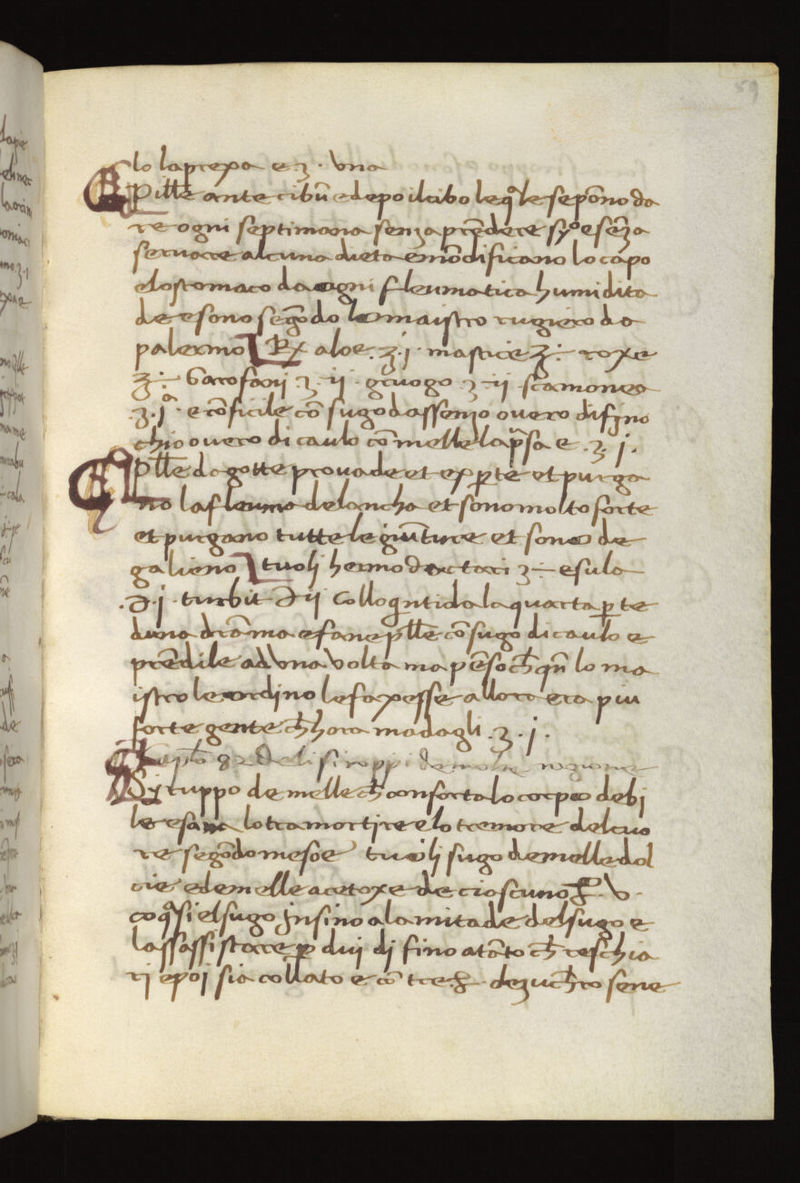 59
lo la prexa e ʒ · una
Pill̃e ante cibũ e depo il cibo le q̃le se põno da
re ogni septimana senza prẽdere syº e sẽza
servare alcuna dieta e mõdificano lo capo
e lo stomaco da ogni fleumatica humidita
de e sono segõdo lo maistro rugiero da
palermo ℞ aloe .ʒ.j. mastice ʒ ÷ roxe
ʒ ÷ Garofani ʒ ij gruogo ʒ ij scamonea
.ʒ.j. e cõficile cõ sugo d assenzo overo di fino
chio overo di caulo cõ melle la p̃sa e .ʒ j.
Pill̃e da gotte provade et exp̱te et purga
no la fleuma de lancha et sono molto forte
et purgano tutte le giũture et sono de
galieno tuoli hermodactari ʒ ÷ esula
.∂.j. turbit ∂ ij colloq̃ntida la quarta p̱te
duna drãma e fane pill̃e cõ sugo di caulo e
prẽdile ad una volta ma pẽso ch̃ qñ lo ma
istro le ordino le faxesse allora era piu
forte gente ch̃ hora ma dagli .ʒ.j.
de li siroppi de
Syruppo de melle ch̃ conforta lo corpo debi
le e sana lo tramortire e lo tremore del cuo
re segõdo mesoe tuoli sugo de melle dol
cie e de melle acetoxe de ciascuno v.
coq̃si el sugo jnsino a la mitade del sugo e
lassassi stare p̱ dui dj fino a tãto ch̃ reschia
rj e poj sia collato e cõ tre de zuch̃ro sene